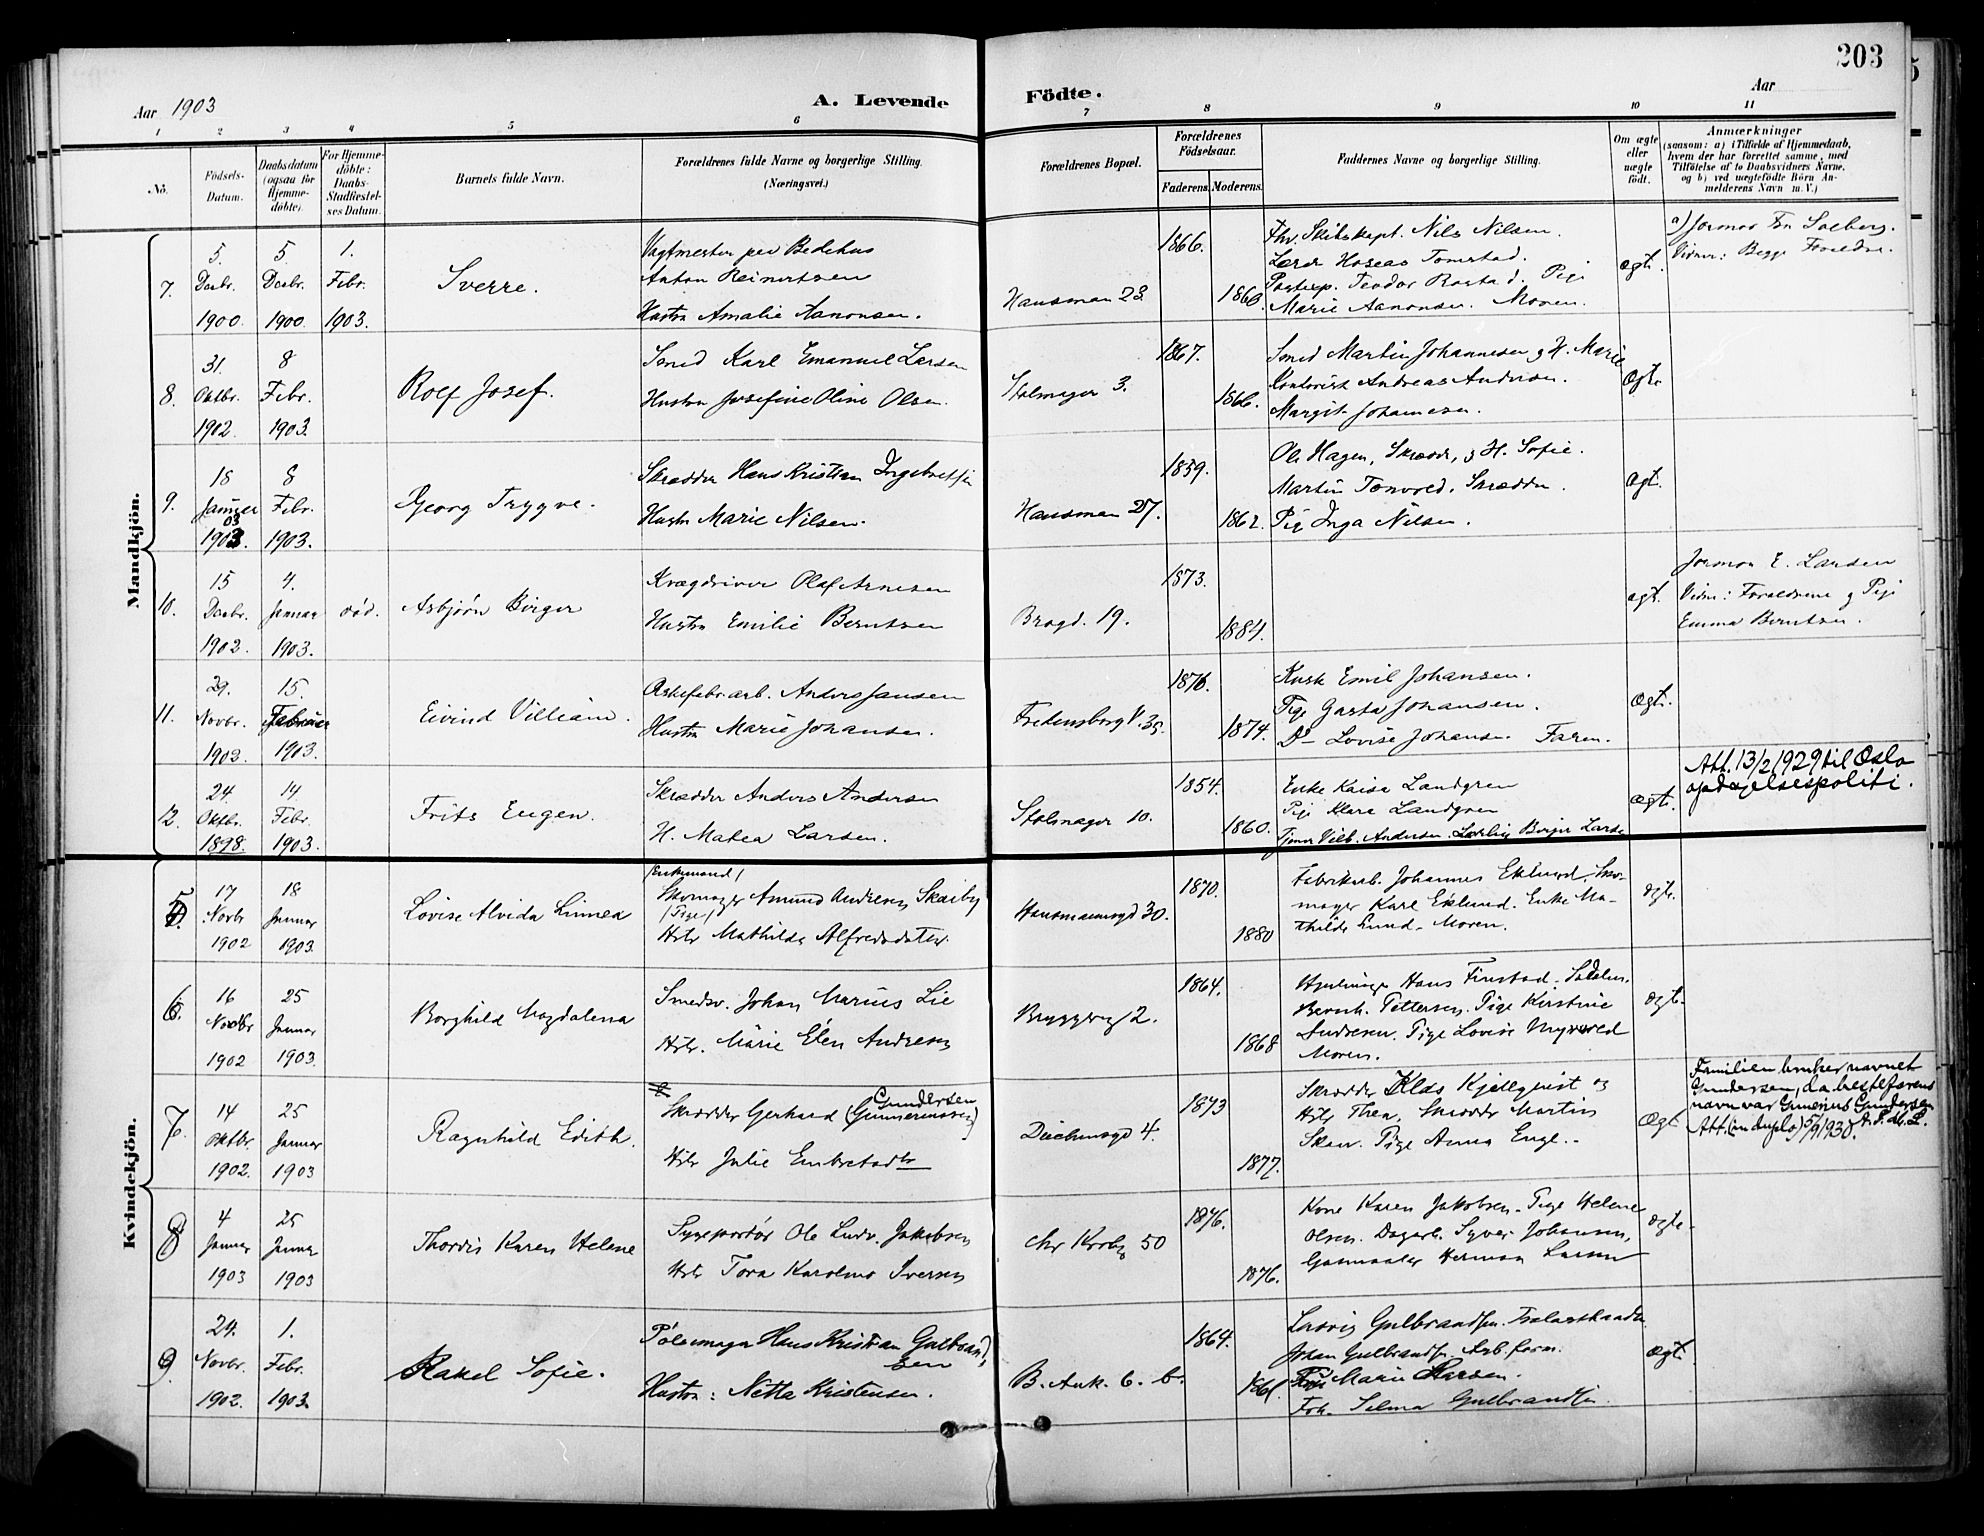 203
Aar 1903
A. Levende Födte.
Aar
1 2 3 4 5 6 7 8 9 10 11
No.
Födsels-
Datum.
Daabsdatum
(ogsaa for
Hjemme-
döbte).
For Hjemme-
döbte:
Daabs-
Stadfæstel-
ses Datum.
Barnets fulde Navn.
Forældrenes fulde Navne og borgerlige Stilling.
(Næringsvei.)
Forældrenes Bopæl.
Forældrenes
Födselsaar.
Faderens.
Moderens.
Faddernes Navne og borgerlige Stilling.
Om ægte
eller
uægte
födt.
Anmærkninger
(saasom: a) i Tilfælde af Hjemmedaab,
hvem der har forrettet samme, med
Tilföielse af to Daabsvidners Navne,
og b) ved uægtefödte Börn An-
melderens Navn m. V.)
Mandkjön.
7.
5. Decbr. 1900.
5 Decbr. 1900.
1. Febr. 1903.
Sverre.
Vagtmester ved Bedehus
Anton Reinertsen
Hustru Amalie Aanonsen.
Hausman 23.
1866.
1860.
Fhv. Skibskapt. Nils Nilsen.
Lærer Hoseas Tomstad.
Postexp. Teodor Rostad. Pige
Marie Aanonsen. Moren.
Ægt.
a) Jormor Frn Solberg.
Vidner: Begge Foreldre.
8.
31. Oktbr. 1902.
8 Febr. 1903.
Rolf Josef.
Smed Karl Emanuel Larsen
Hustru Josefine Oline Olsen.
Stolmager 3.
1867.
1866.
Smed Martin Johannesen og H. Marie
Kontorist Andreas Andersen.
Margit Johannesen.
Ægt.
9.
18 Januar 03 1903.
8 Febr. 1903.
Georg Trygve.
Skrædder Hans Kristian Ingebretsen
Hustr Marie Nilsen.
Hausman 27.
1859.
1862.
Ole Hagen, Skrædd., og H. Sofie.
Martin Tomvold, Skrædder.
Pige Inga Nilsen.
Ægt.
10.
15 Decbr. 1902.
4. Januar 1903.
död.
Asbjørn Birger
Kvægdriver Olaf Arnesen
Hustru Emilie Berntsen
Brogd. 19.
1873.
1884.
ægt.
Jormor E. Larsen
Vidne: Forældrene og Pige
Emma Berntsen.
11.
29. Novbr. 1902.
15. Februar 1903.
Eivind Villiam.
Æskefabr.arb. Anders Jansen
Hustru Marie Johansen.
Fredensborg V. 39.
1876.
1874.
Kusk Emil Johansen.
Pige Gasta Johansen.
D- Lovise Johansen. Faren.
Ægt.
12.
24. Oktbr. 1898.
14 Febr. 1903.
Frits Eugen.
Skrædder Anders Andersen
H. Matea Larsen.
Stolmager 10.
1854.
1860.
Enke Kaisa Landgren
Pige Klara Landgren
Tjener Vilh. Andersen. Lærling Birger Larsen
Ægt.
Att. 13/2 1929 til Oslo
opdagelsespoliti.
Kvindekjön.
5
17 Novbr 1902
18 Januar 1903.
Lovise Alvida Linnea
/Enkemand/
Skomager Amund Andersen Skaiby
/Pige/
Hstr Mathilde Alfredsdatter.
Hausmannsgd 30.
1870.
1880
Fabrikarb. Johannes Eklund. Sko-
mager Karl Eklund. Enke Ma-
thilde Lund. Moren.
ægte.
6.
16 Novbr 1902
25 Januar 1903.
Borghild Magdalena
Smedsv. Johan Marius Lie
Hstr. Marie Elen Andresen
Bryggergt 2.
1864.
1868
Hans Finstad.
Bernh. Pettersen, Pige Kirstine
Andresen. Pige Lovise Myrvold
Moren.
ægte.
7.
14 Oktbr. 1902.
25 Januar 1903
Ragnhild Edith.
Gundersen
Skrædder Gerhard (Gunneriusen)
Hstr Julie Embretsdtr
Deichmsgd 4.
1873
1877.
Skrædder Klas Kjellqvist og
Hstr Thea, Skrædder Martin
Skau. Pige Anna Enge.
Ægt.
Familien bruker navnet
Gundersen, da bestefarens
navn var Gunerius Gundersen
Att. (in duplo) 5/9 1930.
8
4 Januar 1903
25 Januar 1903
Thordis Karen Helene
Sygeportør Ole Ludv. Jakobsen
Hstr Tora Karoline Iversen
Chr Krohg 50
1876.
1876.
Kone Karen Jakobsen. Pige Helene
Olsen. Dagarb. Syver Johansen,
Gasmaaler Herman Larsen
ægte.
9.
24. Novbr. 1902.
1. Febr. 1903.
Rakel Sofie.
Pølsemager Hans Kristian Gulbrand-
sen
Hustru: Netta Kristensen.
B. Ank. 6. b.
1864.
1861.
Lovis Gulbrandsen.
Johan Gulbrandsen. Arb.form.
Pige Marie Larsen.
Frk. Selma Gulbrandsen
Ægt.